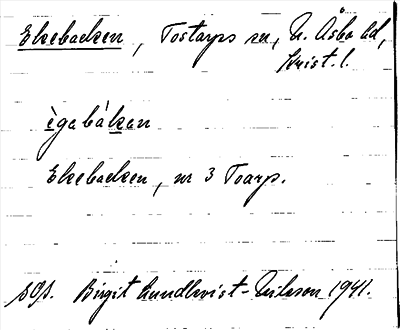 Ekebacken, Tostarps sn, N. Åsbo hd,
Krist. l.
ègabàkan
Ekebacken, nr 3 Toarp.
Birgit Lundkvist-Nilsson 1941.